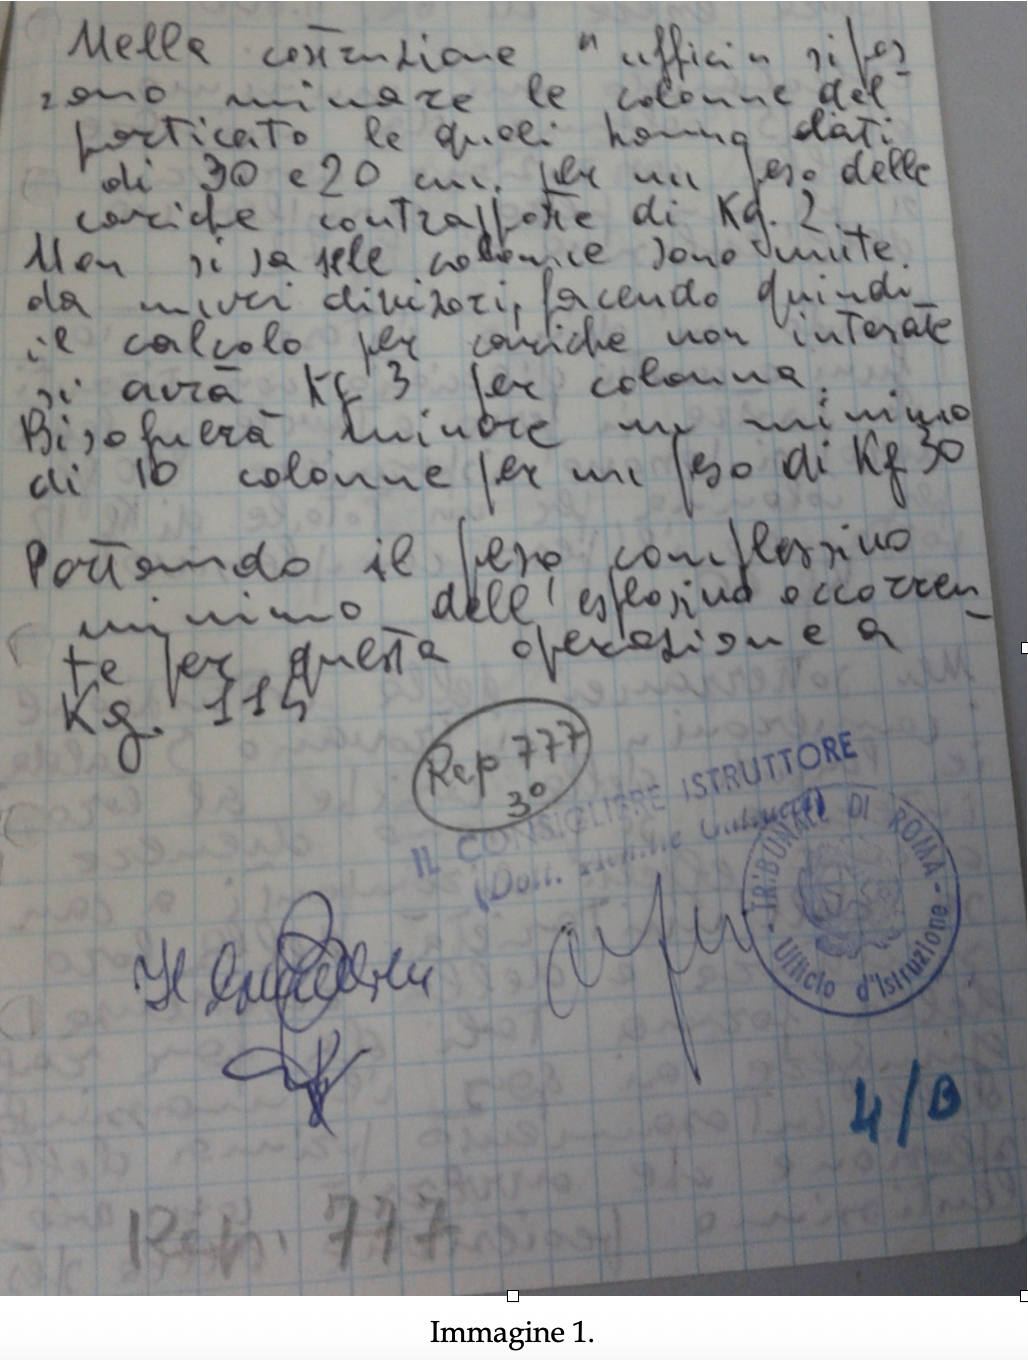 Nella costruzione "uffici" si pos
sono minare le colonne del
porticato le quali hanno dati
di 30 e 20 cm. per un peso delle
cariche contrapposte di Kg. 2
Non si sa se le colonne sono unite
da muri divisori, facendo quindi
il calcolo per cariche non intasate
si avrà Kg 3 per colonna.
Bisognerà minare un minimo
di 10 colonne per un peso di Kg 30
Portando il peso complessivo
minimo dell'esplosivo occorren-
te per questa operazione a
Kg. 115
Rep 777
3°
IL CONSIGLIERE ISTRUTTORE
(Dott.
TRIBUNALE DI ROMA
Ufficio d'Istruzione
4/B
Rep. 777
Immagine 1.